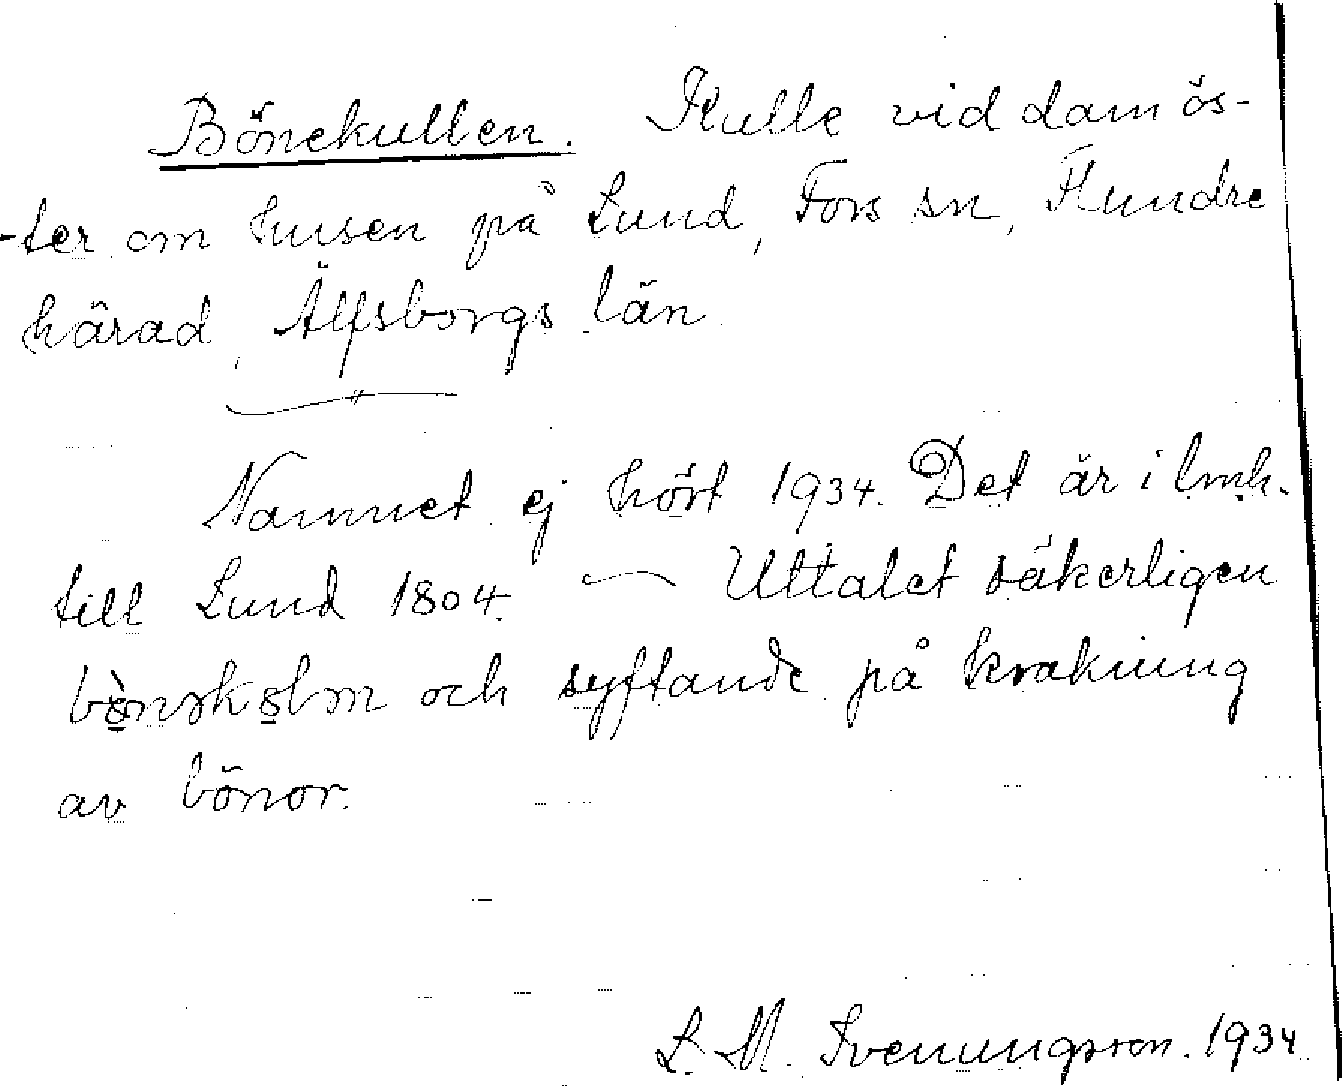 Bönekullen. Kulle vid dam ös-
-ter om husen på Lund, Fors sn, Flundre
härad, Älfsborgs län
Namnet ej hört 1934. Det är i lmh.
till Lund 1804. — Uttalet säkerligen
och syftande på krakning
av bönor.
L. M. Svenungsson. 1934